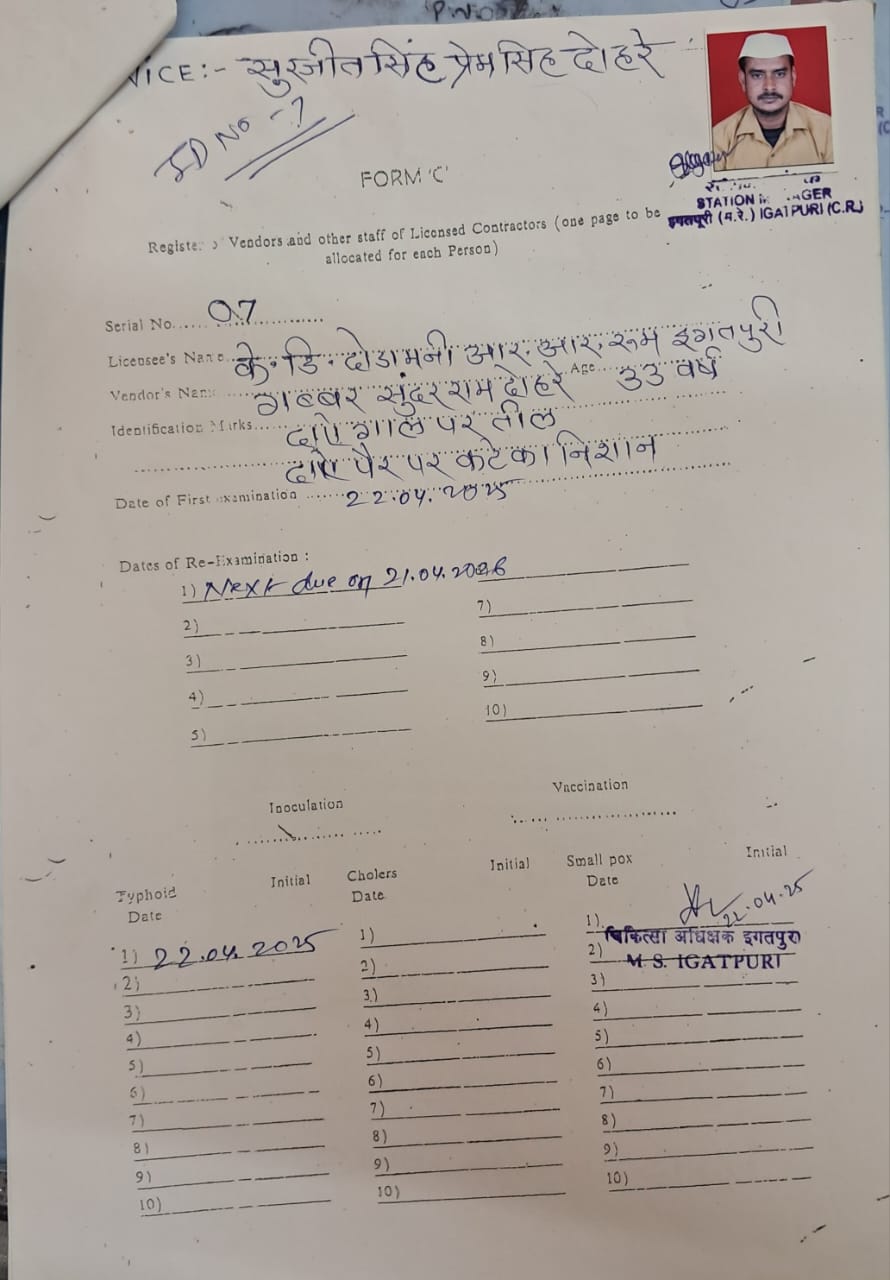 VICE:- सुरजीत सिंह प्रेम सिंह दोहरे
ID No - 7
FORM 'C'
STATION MANAGER
इगतपुरी (म.रे.) IGATPURI (C.R.)
Vendors and other staff of Licensed Contractors (one page to be
allocated for each Person)
Serial No. 07
Licensee's Name के. डि. दोडामनी आर. आर. रूम इगतपुरी
Vendor's Name गब्बर सुंदर राम दोहरे Age 33 वर्ष
Identification Marks दाऐ गाल पर तील
दाऐ पैर पर कटे का निशान
Date of First examination 22.04.2025
Dates of Re-Examination :
1) Next due on 21.04.2026
2) 7)
3) 8)
4) 9)
5) 10)
Inoculation Vaccination
Typhoid Initial Cholers Initial Small pox Initial
Date Date Date
22.04.25
1) 22.04.2025 1) 1)
चिकित्सा अधिक्षक इगतपुरी
2) 2) 2) M. S. IGATPURI
3) 3) 3)
4) 4) 4)
5) 5) 5)
6) 6) 6)
7) 7) 7)
8) 8) 8)
9) 9) 9)
10) 10) 10)